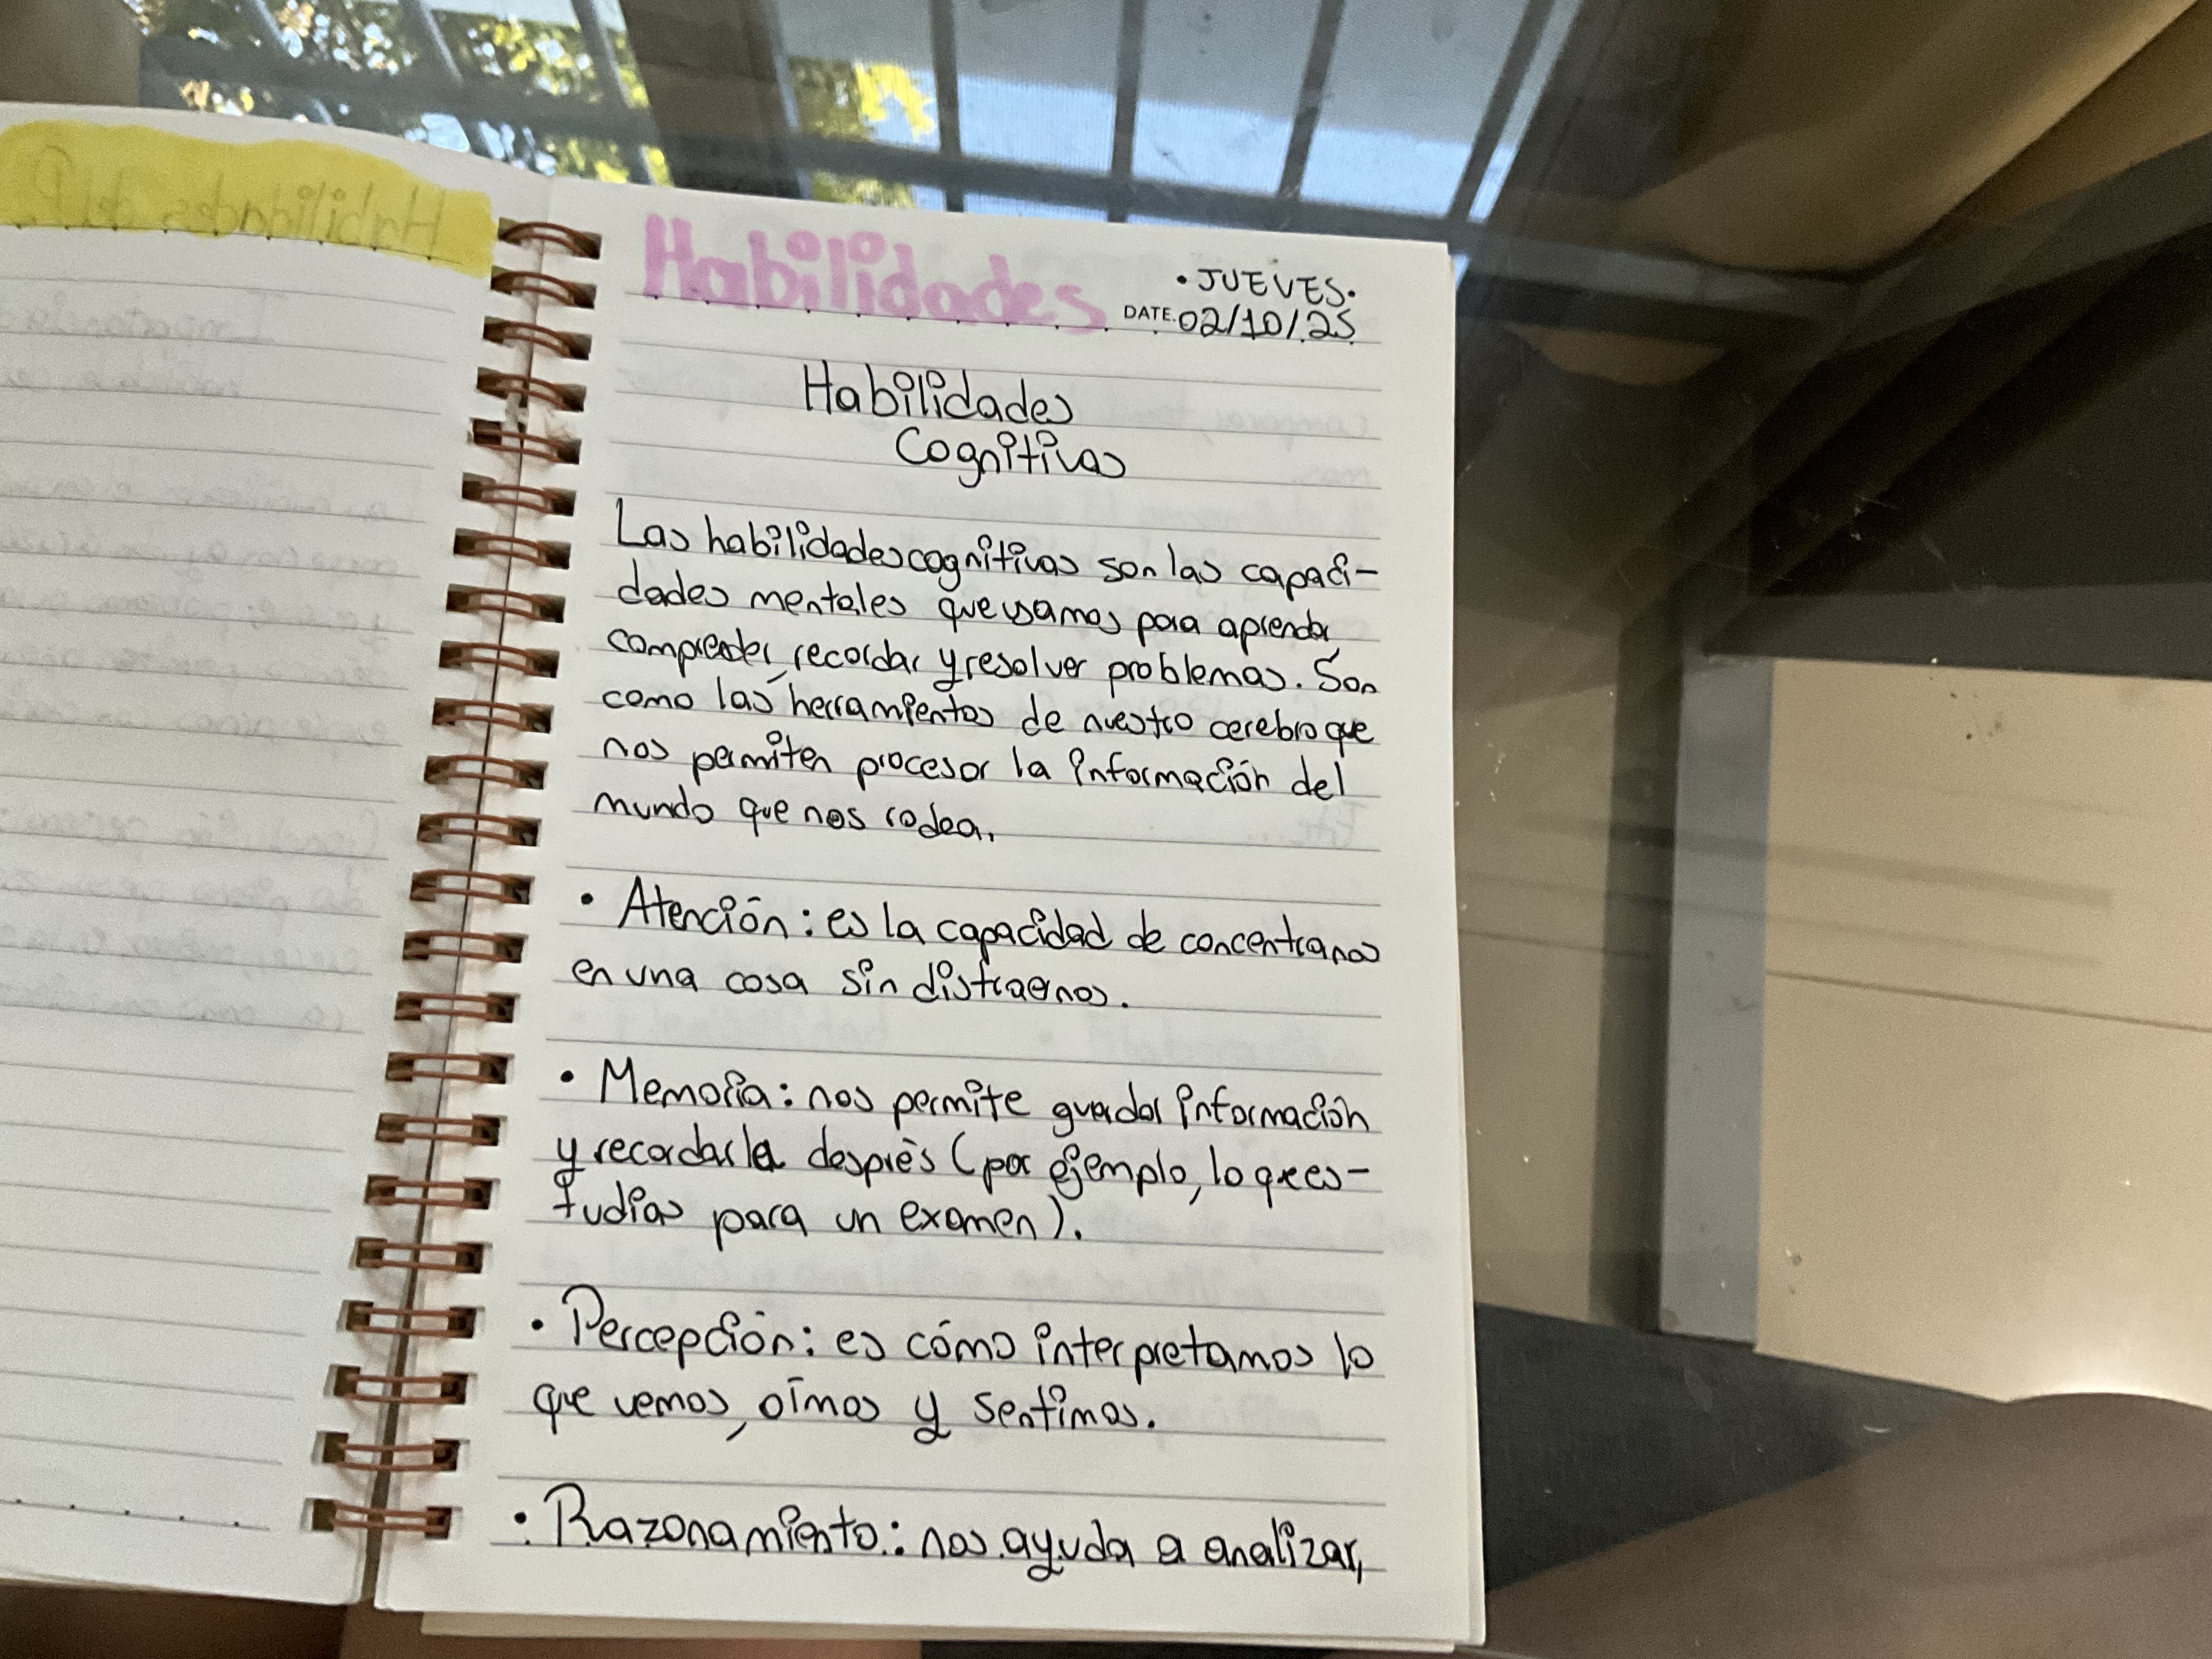 Habilidades
• JUEVES •
DATE. 02/10/25
Habilidades
Cognitivas
Las habilidades cognitivas son las capaci-
dades mentales que usamos para aprender,
comprender, recordar y resolver problemas. Son
como las herramientas de nuestro cerebro que
nos permiten procesar la información del
mundo que nos rodea.
• Atención: es la capacidad de concentrarnos
en una cosa sin distraernos.
• Memoria: nos permite guardar información
y recordarla después (por ejemplo, lo que es-
tudias para un examen).
• Percepción: es cómo interpretamos lo
que vemos, oímos y sentimos.
• Razonamiento: nos ayuda a analizar,